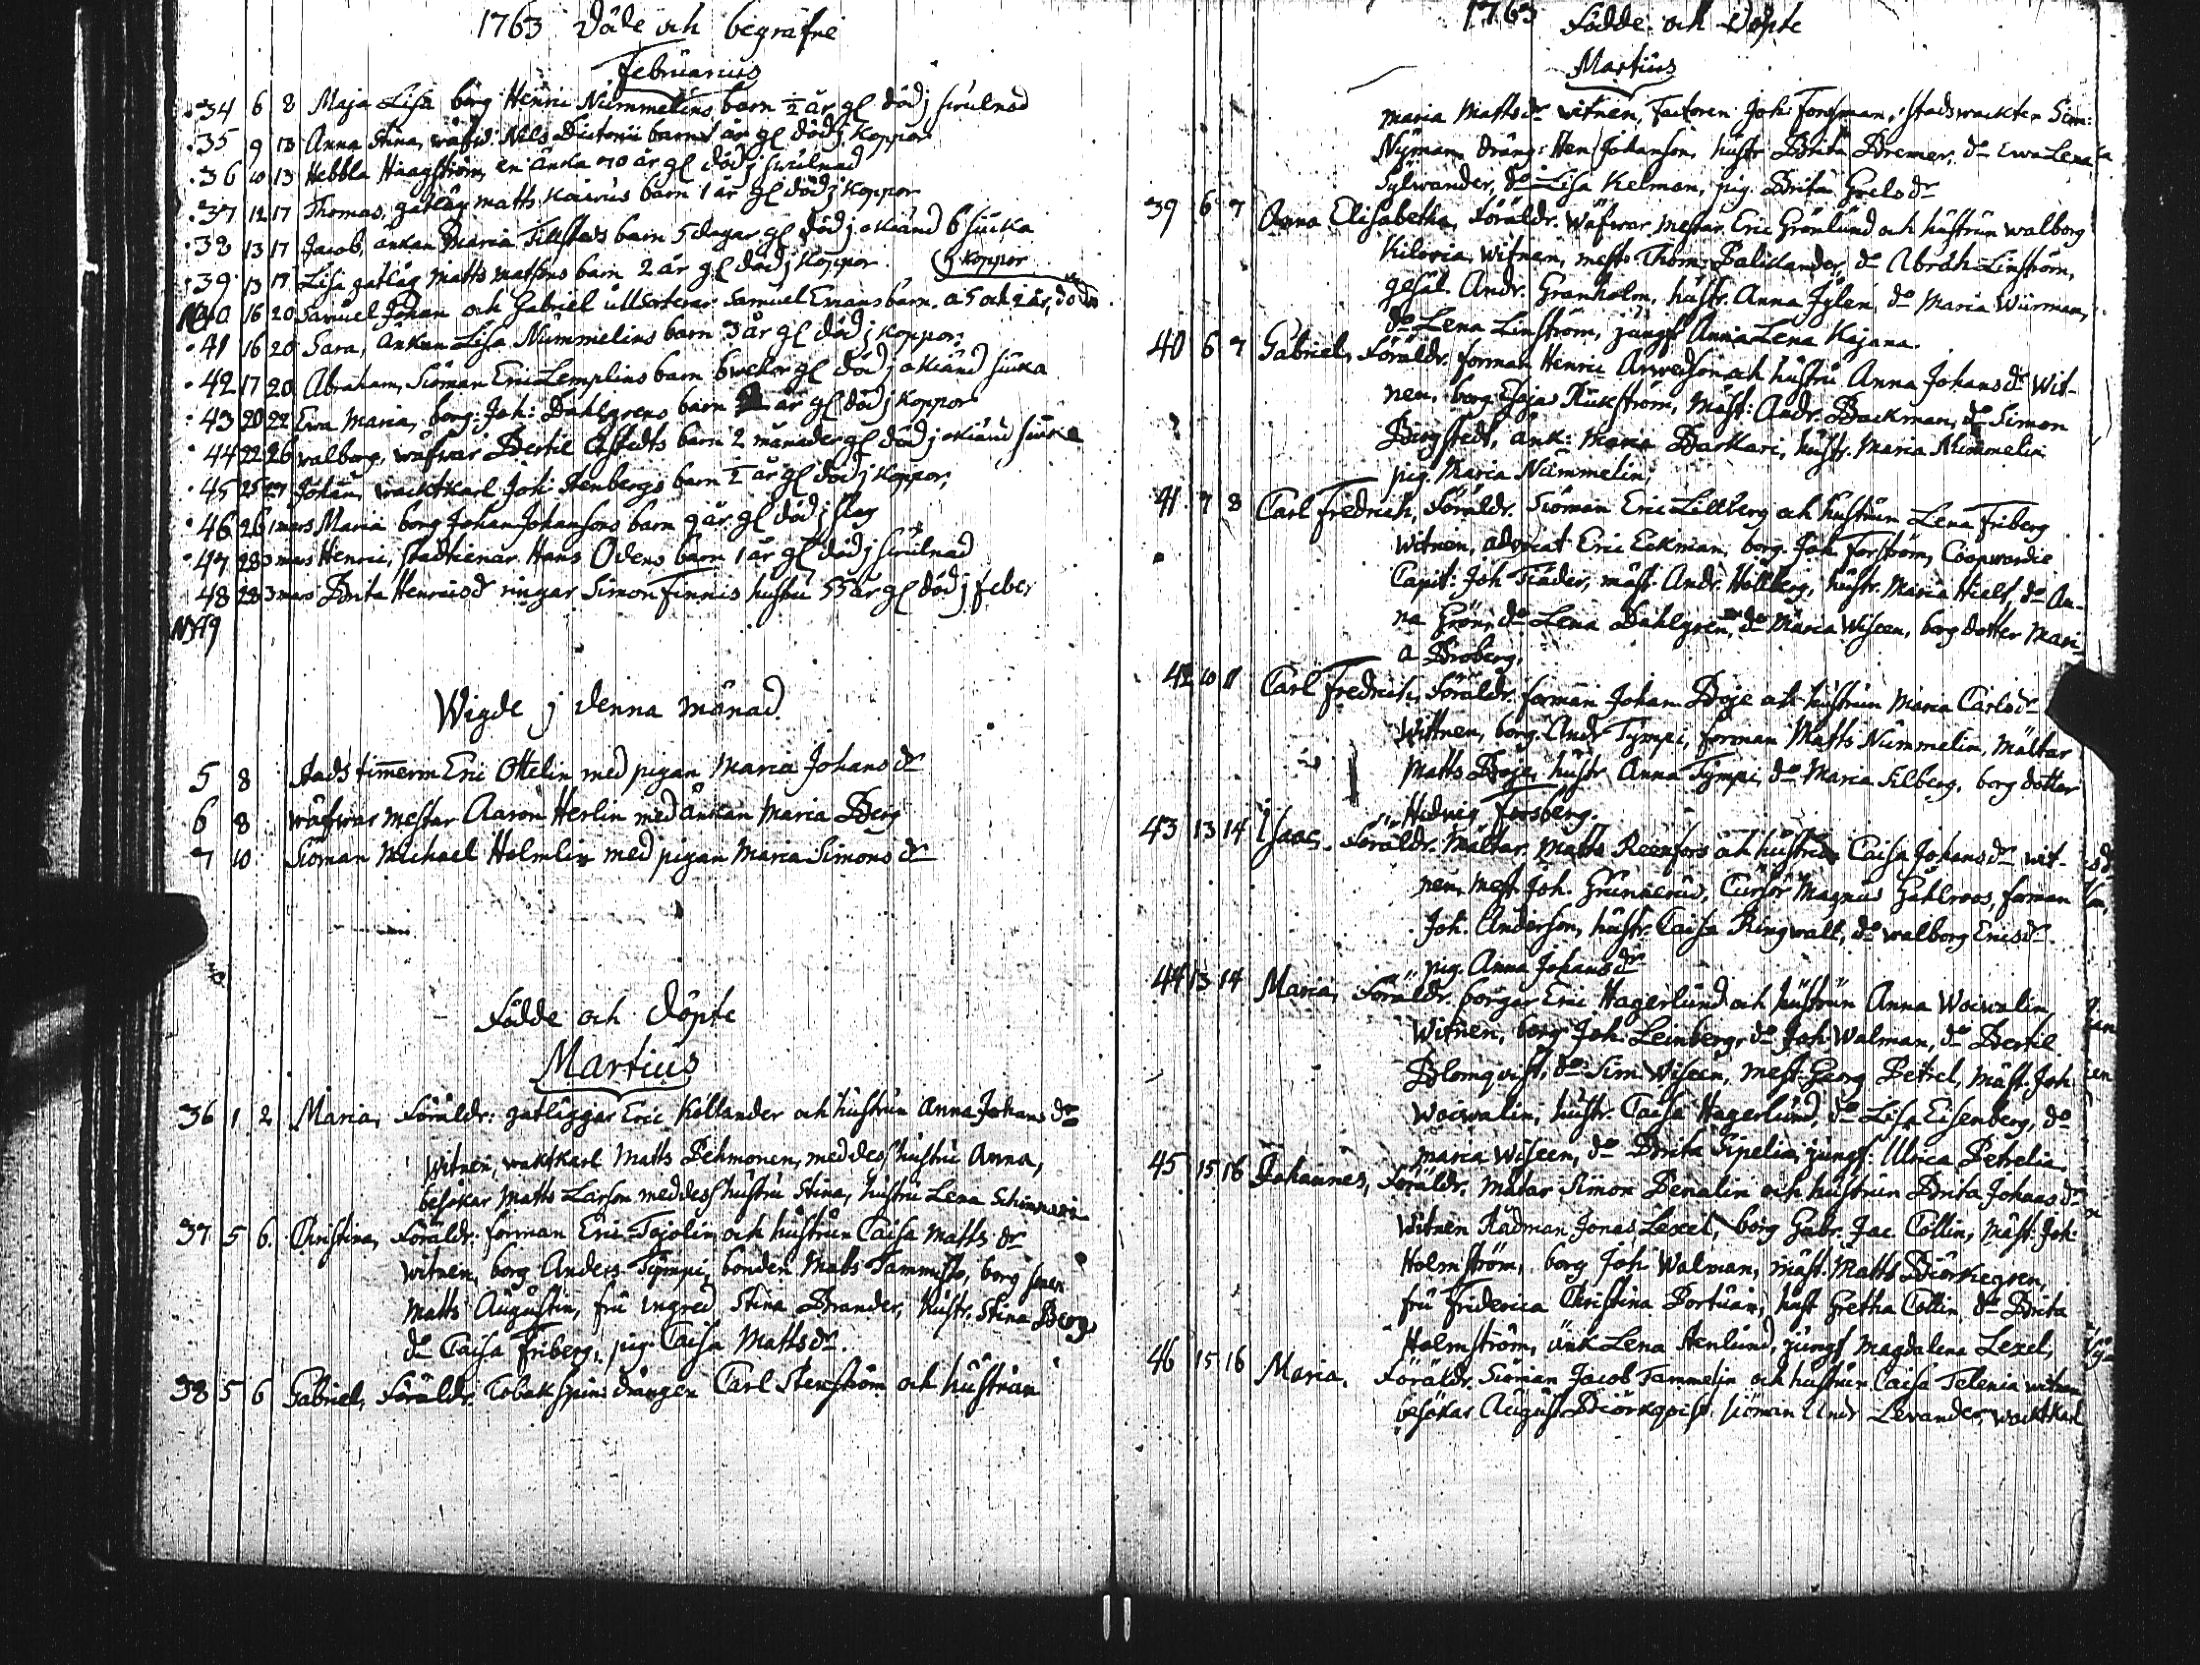 1763 Döde och begrafne
Februarius
34 6 8 Maja Lisa borg Henric Nummelins barn ½ år gl död j swulnad
35 9 13 Anna Stina, wäfw. Nils Dictorii barn 1 år gl död j koppor
36 10 13 Hebbla Haagström, en änka 70 år gl död j swulnad
37 12 17 Thomas, gatläg matts Kaarus barn 1 år gl död j koppor
38 13 17 Jacob, änkan Maria Tillstads barn 5 dagar gl död j okiänd siuka
39 13 17 Lisa gatläg Matts matsons barn 2 år gl död j koppor
j koppor
40 16 20 Samuel Johan och Gabriel ullsorterar Samuel Enans barn. a 5 och 2 år, död
41 16 20 Sara, änkan Lisa Nummelins barn 3 år gl död j koppor
42 17 20 Abraham, Siöman Eric Lemplins barn 6 wekor gl död j okiänd siuka
43 20 22 Ewa Maria, borg: Joh: Dahlgrens barn år gl död j koppor
44 22 26 walborg, wäfwar Bertil barn 2 månader gl död j okiänd siuka
45 25 27 Johan, wacktkarl Joh: Stenbergs barn ½ år gl död j koppor,
46 26 1 mars Maria borg Johan Johansons barn 9 år gl död j slag
47 28 3 mars Henric, stadtienar Hans Odens barn 1 år gl död j swulnad
48 28 3 mars Brita Henricsdr ringar Simon Finnis hustru 55 år gl död j feber
N:49
Wigde j denna månad.
5 8 Stads timerm Eric Ottelin med pigan Maria Johansdr
6 8 wäfwar mestar Aaron Herlin med änkan Maria Berg
7 10 Siöman Michael Holmlin med pigan Maria Simonsdr
Födde och döpte
Martius
36 1 2 Maria, Föräldr: gatläggar Eric Kollander och hustrun Anna Johansdr
witnen, waktkarl Matts Pehmonen, med dess hustru Anna,
besökar Matts Larson med dess hustru Stina, hustru Lena
37 5 6 Christina, Föräldr: forman Eric Tojolin och hustrun Caisa Mattsdr
witnen, borg Anders Tympi, bonden Matts Tammisto, borg sonen
Matts Augustin, fru Ingred Stina Brander, hustr. Stina Berg
do Caisa Friberg, pig Caisa Mattsdr.
38 5 6 Gabriel, Föräldr. Tobakspins drängen Carl Stenström och hustrun
1763 Födde och Döpte
Martius
maria Mattsdr witnen, Factoren Joh: Forssman, Stadswackten Sim:
Nyman, dräng: Hen Johanson, hustr Brita Bremer, do Ewa Lena
Sylwander, do Lisa Kelman, pig. Brita Grelsdr
39 6 7 Anna Elisabetha, Föräldr. Wäfwar mestar Eric Grönlund och hustrun walborg
Kiloria, witnen, mest: Thom: Palikander, do Abrah Linström,
gesäl. Andr. Granholm, hustr. Anna Jglen, do Maria Wurman,
do Lena Linström, jungf Anna Lena Kajana.
40 6 7 Gabriel, Föräldr. forman Henric Arwedson och hustru Anna Johansdr Wit-
nen, borg Esajas Rückström, Mäst: Andr. Backman, do Simon
Bergstedt, änk: Maria Barkari, hustr. Maria Nummelin
pig. Maria Nummelin,
41 7 8 Carl Fredrich, Föräldr. Siöman Eric Lillberg och hustrun Lena Friberg
witnen, advocat Eric Eckman, borg. Joh Forström, Coopwardie
Capit: Joh Fräder, mäst Andr. Hollberg, hustr. Maria Hielt, do An-
na Grön, do Lena Dahlgren, do Maria Wiseen, borg dotter Mari-
a Broberg,
42 10 11 Carl Fredrich, Föräldr. forman Johan Boje och hustrun Maria Carlsdr
Wittnen, borg. Andr Tympi, forman Matts Nummelin, Mältar
Matts Boje, hustr Anna Tympi, do Maria Silberg, borg dotter
Hedwig Forsberg.
43 13 14 Isaac, Föräldr. Mältar Matts Reenfors och hustrun Caisa Johansdr wit-
nen, Mest Joh. Grunnerus, Cursor Magnus Gahlroos, forman
Joh. Anderson, hustr. Caisa Ringwall, do walborg Ericsdr
pig. Anna Johansdr
44 13 14 Maria, Föräldr. borgar Eric Hagerlund och hustrun Anna Woiwalin,
witnen, borg Joh: Leinberg, do Joh Walman, do Bertil
Blomqvist, do Sim. Wiseen, Mest: Georg Petrel, Mäst. Joh
Woiwalin, hustr. Caisa Hagerlund, do Lisa Eisenberg, do
maria Wiseen, do Brita Sipelia, jungf: Ulrica Petrelia.
45 15 16 Johannes, Föräldr. Mätar Simon Penalin och hustrun Brita Johansdr
witnen Rådman Jonas Lexel, borg Gabr. Jac Collin, Mäst: Joh:
Holmström, borg Joh Walman, mäst. Matts Biörkegren,
fru Friderica Christina Portuan, hust Gretha Collin, do Brita
Holmström, änk Lena Stenlund, jungf Magdalena Lexel,
46 15 16 Maria, Föräldr. Siöman Jacob Tammelin och hustrun Caisa Telenia witnen
besökar August Biörkqvist, siöman Andr Levander, wacktkarl